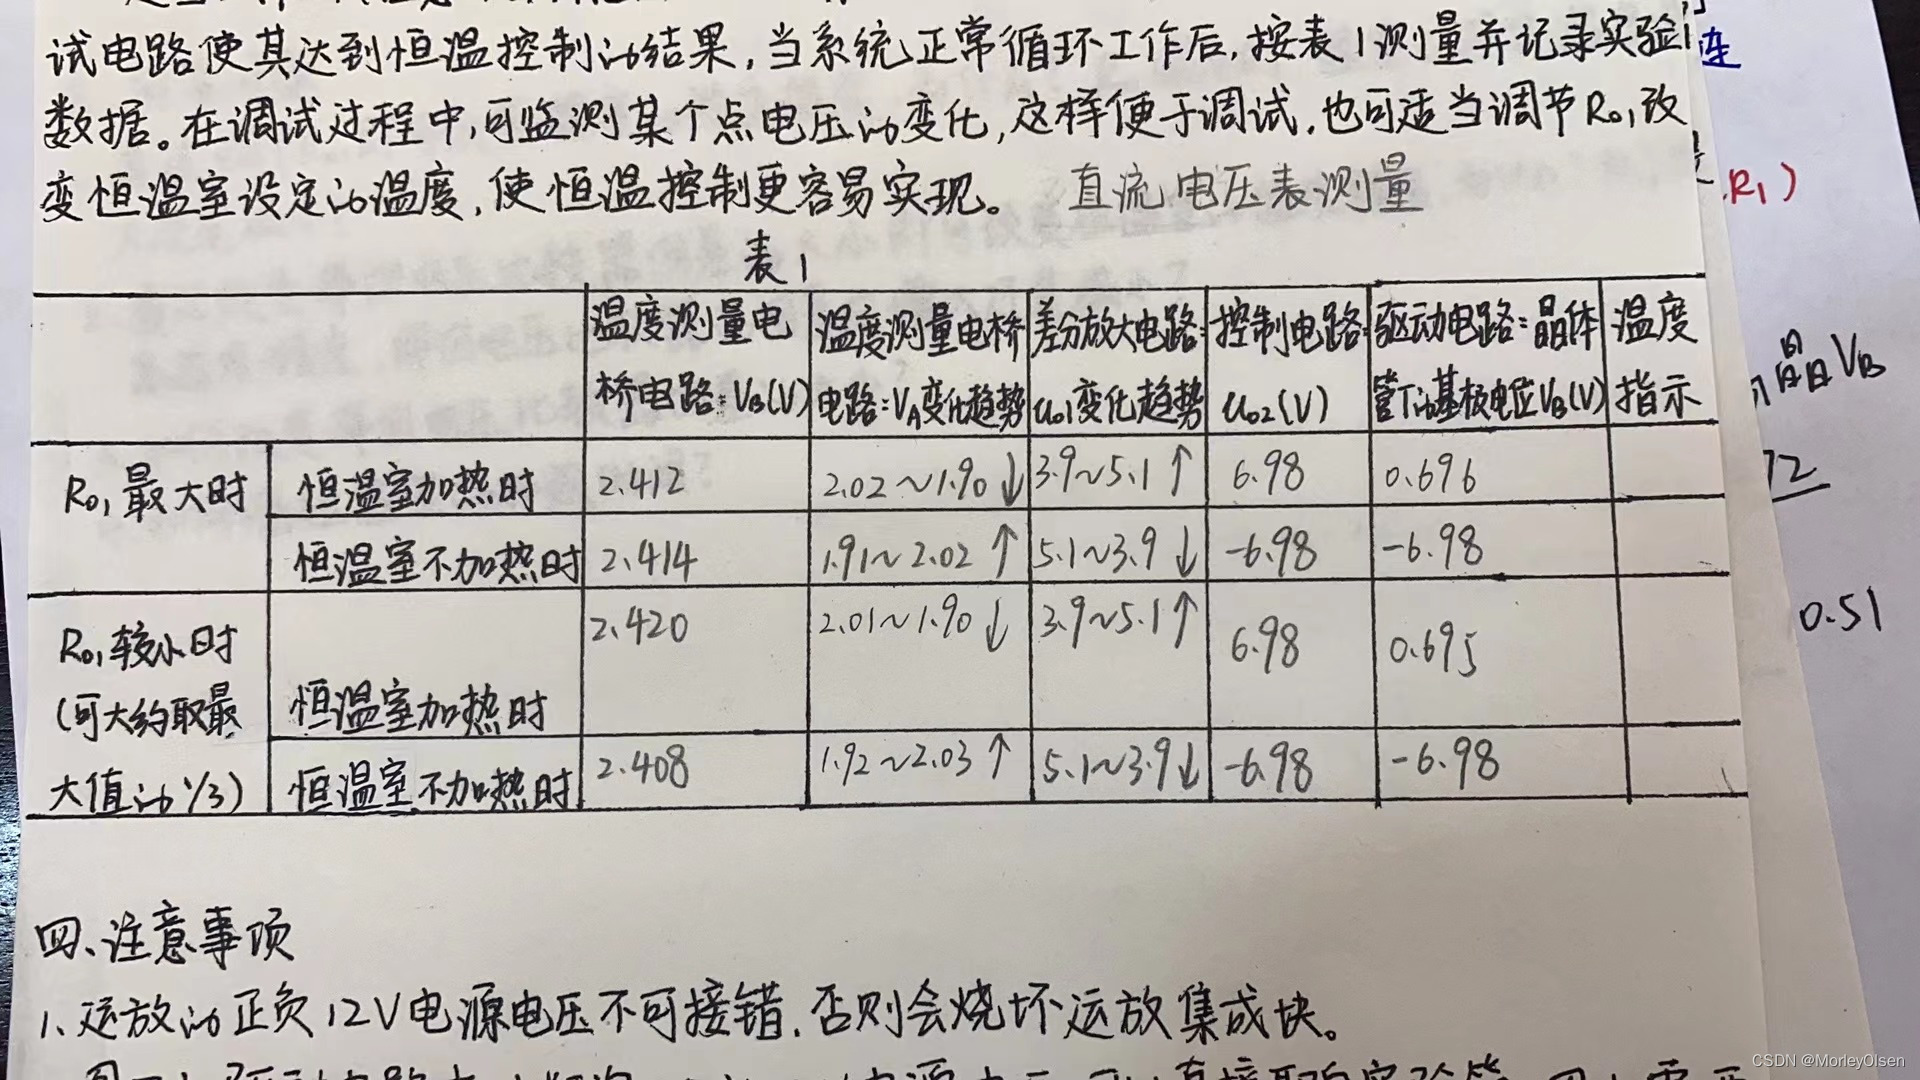 试电路使其达到恒温控制的结果,当系统正常循环工作后,按表1测量并记录实验
数据。在调试过程中,可监测某个点电压的变化,这样便于调试,也可适当调节R01,改
变恒温室设定的温度,使恒温控制更容易实现。 直流电压表测量
表1
温度测量电桥电路:VB(V) 温度测量电桥电路:VA变化趋势 差分放大电路:uo1变化趋势 控制电路:uo2(V) 驱动电路:晶体管T的基极电位VB(V) 温度指示
R01最大时 恒温室加热时 2.412 2.02~1.90↓ 3.9~5.1↑ 6.98 0.696
恒温室不加热时 2.414 1.91~2.02↑ 5.1~3.9↓ -6.98 -6.98
R01较小时(可大约取最大值的1/3) 恒温室加热时 2.420 2.01~1.90↓ 3.9~5.1↑ 6.98 0.695
恒温室不加热时 2.408 1.92~2.03↑ 5.1~3.9↓ -6.98 -6.98
四、注意事项
1、运放的正负12V电源电压不可接错,否则会烧坏运放集成块。
连
R1)
晶VB
72
0.51
CSDN @MorleyOlsen